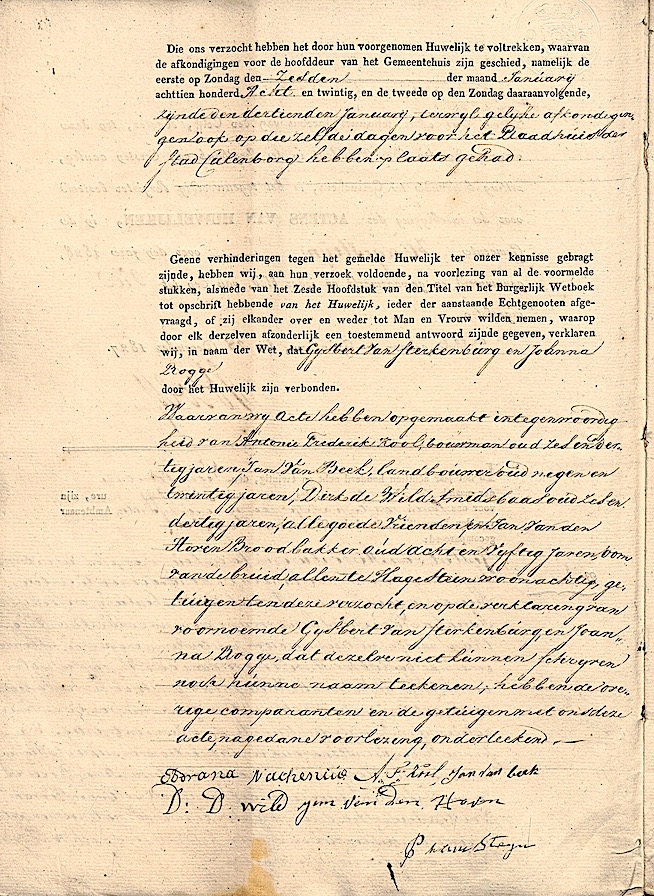 Die ons verzocht hebben het door hun voorgenomen Huwelijk te voltrekken, waarvan
de afkondigingen voor de hoofddeur van het Gemeentehuis zijn geschied, namelijk de
eerste op Zondag den Zesden der maand Januarij
achttien honderd Acht en twintig, en de tweede op den Zondag daaraanvolgende,
zijnde den dertienden Januarij, terwyl gelyke afkondigin-
gen ook op die zelfde dagen voor het Raadhuis der
Stad Culenborg hebben plaats gehad.
Geene verhinderingen tegen het gemelde Huwelijk ter onzer kennisse gebragt
zijnde, hebben wij, aan hun verzoek voldoende, na voorlezing van al de voormelde
stukken, alsmede van het Zesde Hoofdstuk van den Titel van het Burgerlijk Wetboek
tot opschrift hebbende van het Huwelijk, ieder der aanstaande Echtgenooten afge-
vraagd, of zij elkander over en weder tot Man en Vrouw wilden nemen, waarop
door elk derzelven afzonderlijk een toestemmend antwoord zijnde gegeven, verklaren
wij, in naam der Wet, dat Gysbert Van Sterkenburg en Joanna
Rogge
door het Huwelijk zijn verbonden.
Waarvan wy Acte hebben opgemaakt in tegenwoordig
heid van Antonie Frederik Kool, bouwman oud zes en der-
tig jaren, Jan Van Beek, landbouwer oud negen en
twintig jaren, Dirk de Wild, smidsbaas oud zes en
dertig jaren, alle goede Vrienden en Jan Van den
Hoven Broodbakker oud acht en Vyftig Jaren, Oom
van de bruid, allen te Hagestein woonachtig, ge-
tuigen ten deze verzocht, en op de verklaring van
voornoemde Gysbert Van Sterkenburg en Joan-
na Rogge, dat dezelve niet kunnen schryven
noch hunne naam teekenen, hebben de ove-
rige comparanten en de getuigen met ons deze
acte, na gedane voorlezing, onderteekend.
Nachenius A. F. Kool Jan van beek
D: D. Wild Jan Van Den Hoven